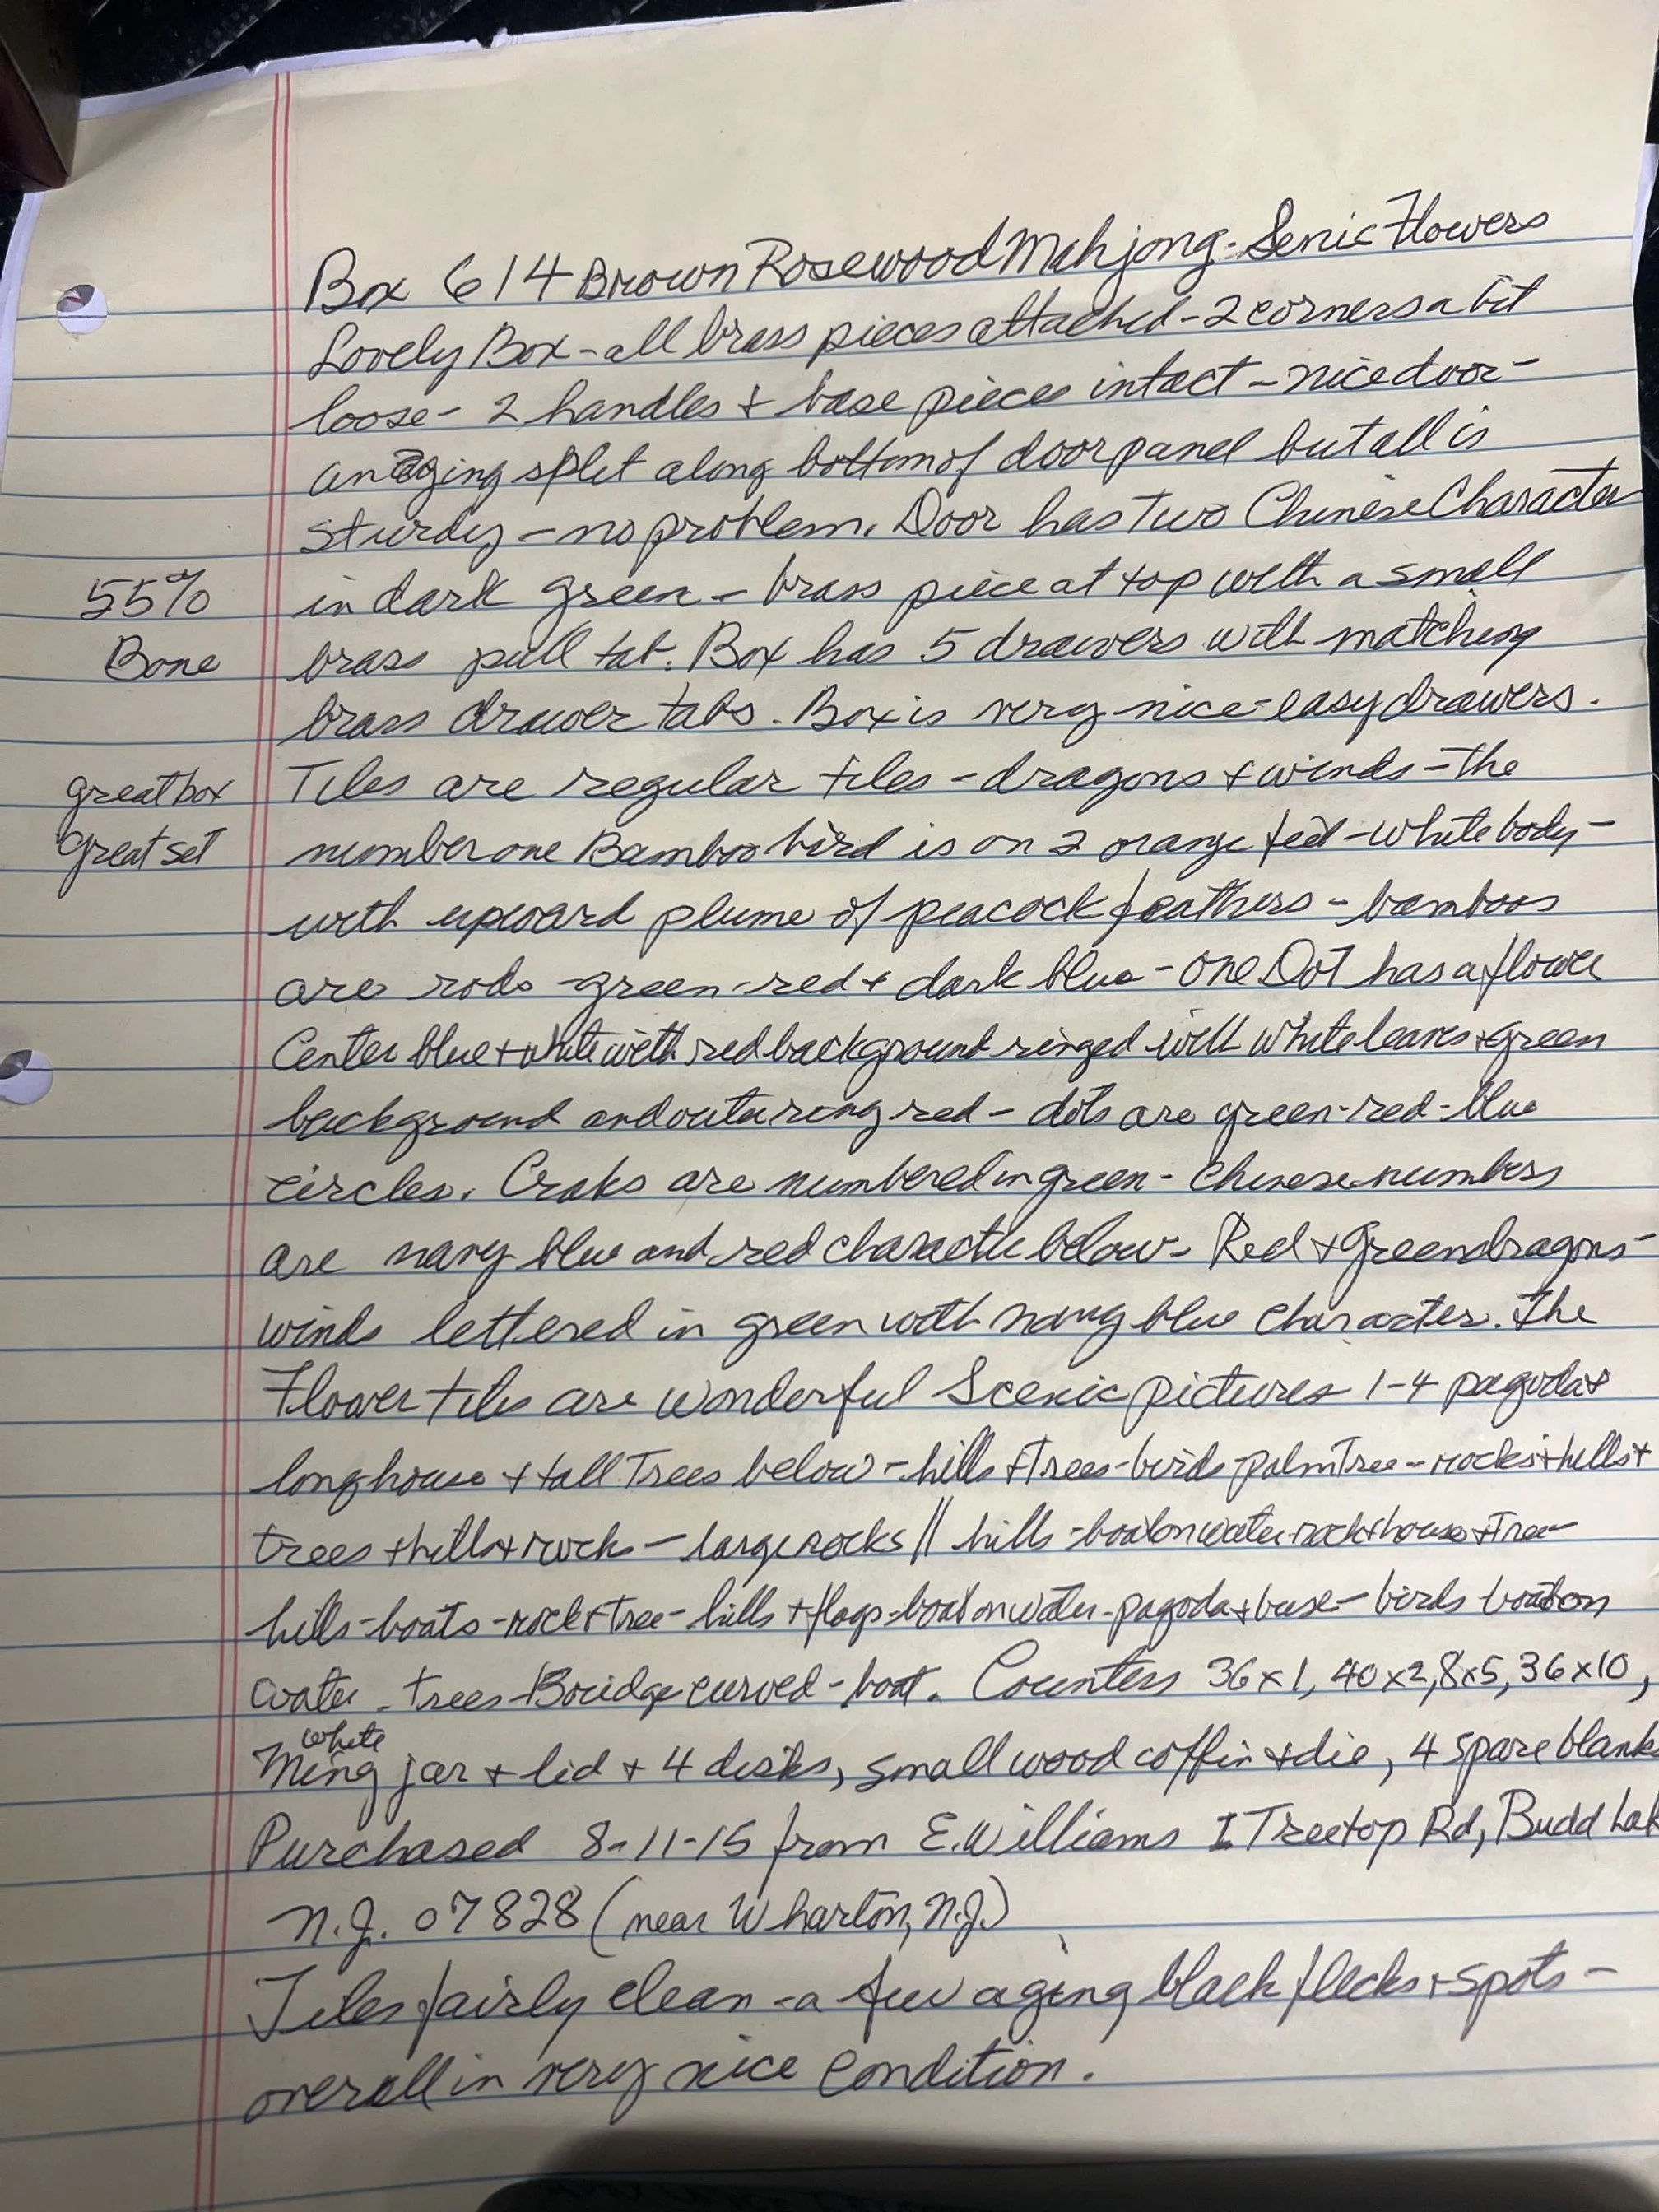 Box 614 Brown Rosewood Mahjong - Senic Flowers
Lovely Box - all brass pieces attached - 2 corners a bit
loose - 2 handles + base pieces intact - nice door -
an aging split along bottom of door panel but all is
sturdy - no problem. Door has Two Chinese Character
55% in dark green - brass piece at top with a small
Bone brass pull tab. Box has 5 drawers with matching
brass drawer tabs. Box is very nice - easy drawers.
great box Tiles are regular tiles - dragons + winds - The
great set number one Bamboo bird is on 2 orange feet - white body -
with upward plume of peacock feathers - bamboos
are rods - green - red + dark blue - one Dot has a flower
Center blue + white with red background ringed with white leaves + green
background and outer ring red - dots are green - red - blue
circles. Craks are numbered in green - Chinese numbers
are navy blue and red character below - Red + Green dragons -
winds lettered in green with navy blue character. The
Flower tiles are wonderful Scenic pictures 1-4 pagoda +
long house + tall Trees below - hills + trees - birds - palm Tree - rocks + hills +
trees + hills + rocks - large rocks || hills - boat on water - rock + house + Tree -
hills - boats - rock + tree - hills + flags - boat on water - pagoda + base - birds boat on
water - trees - Bridge curved - boat. Counters 36x1, 40x2, 8x5, 36x10,
white
Ming jar + lid + 4 disks, small wood coffin + die, 4 spare blank
Purchased 8-11-15 from E. Williams 1 Treetop Rd, Budd Lak
N.J. 07828 (near Wharton, N.J.)
Tiles fairly clean - a few aging black flecks + spots -
overall in very nice condition.